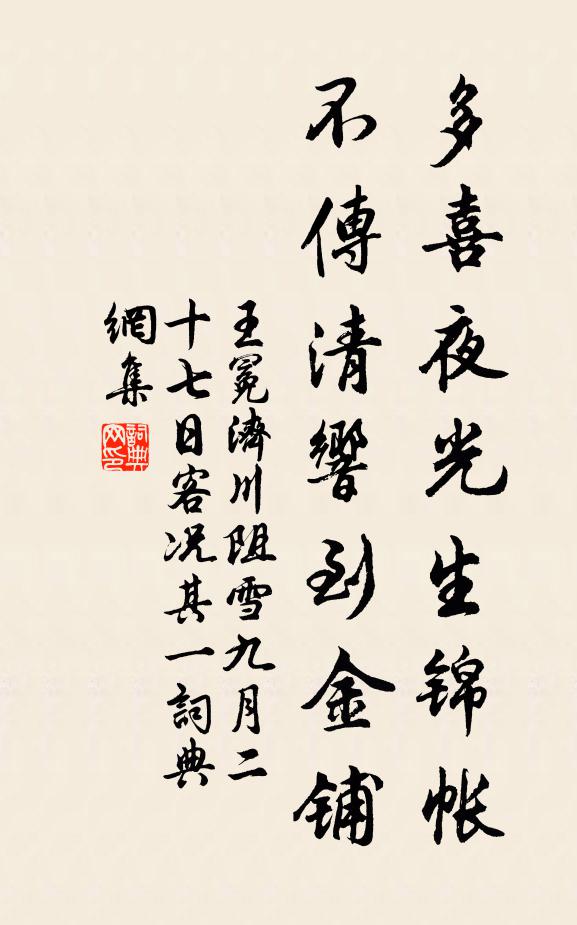 多喜夜光生錦帳
不傳清響到金鋪
王冕濟川阻雪九月二
十七日客况其一詞典
網集
詞典
网印